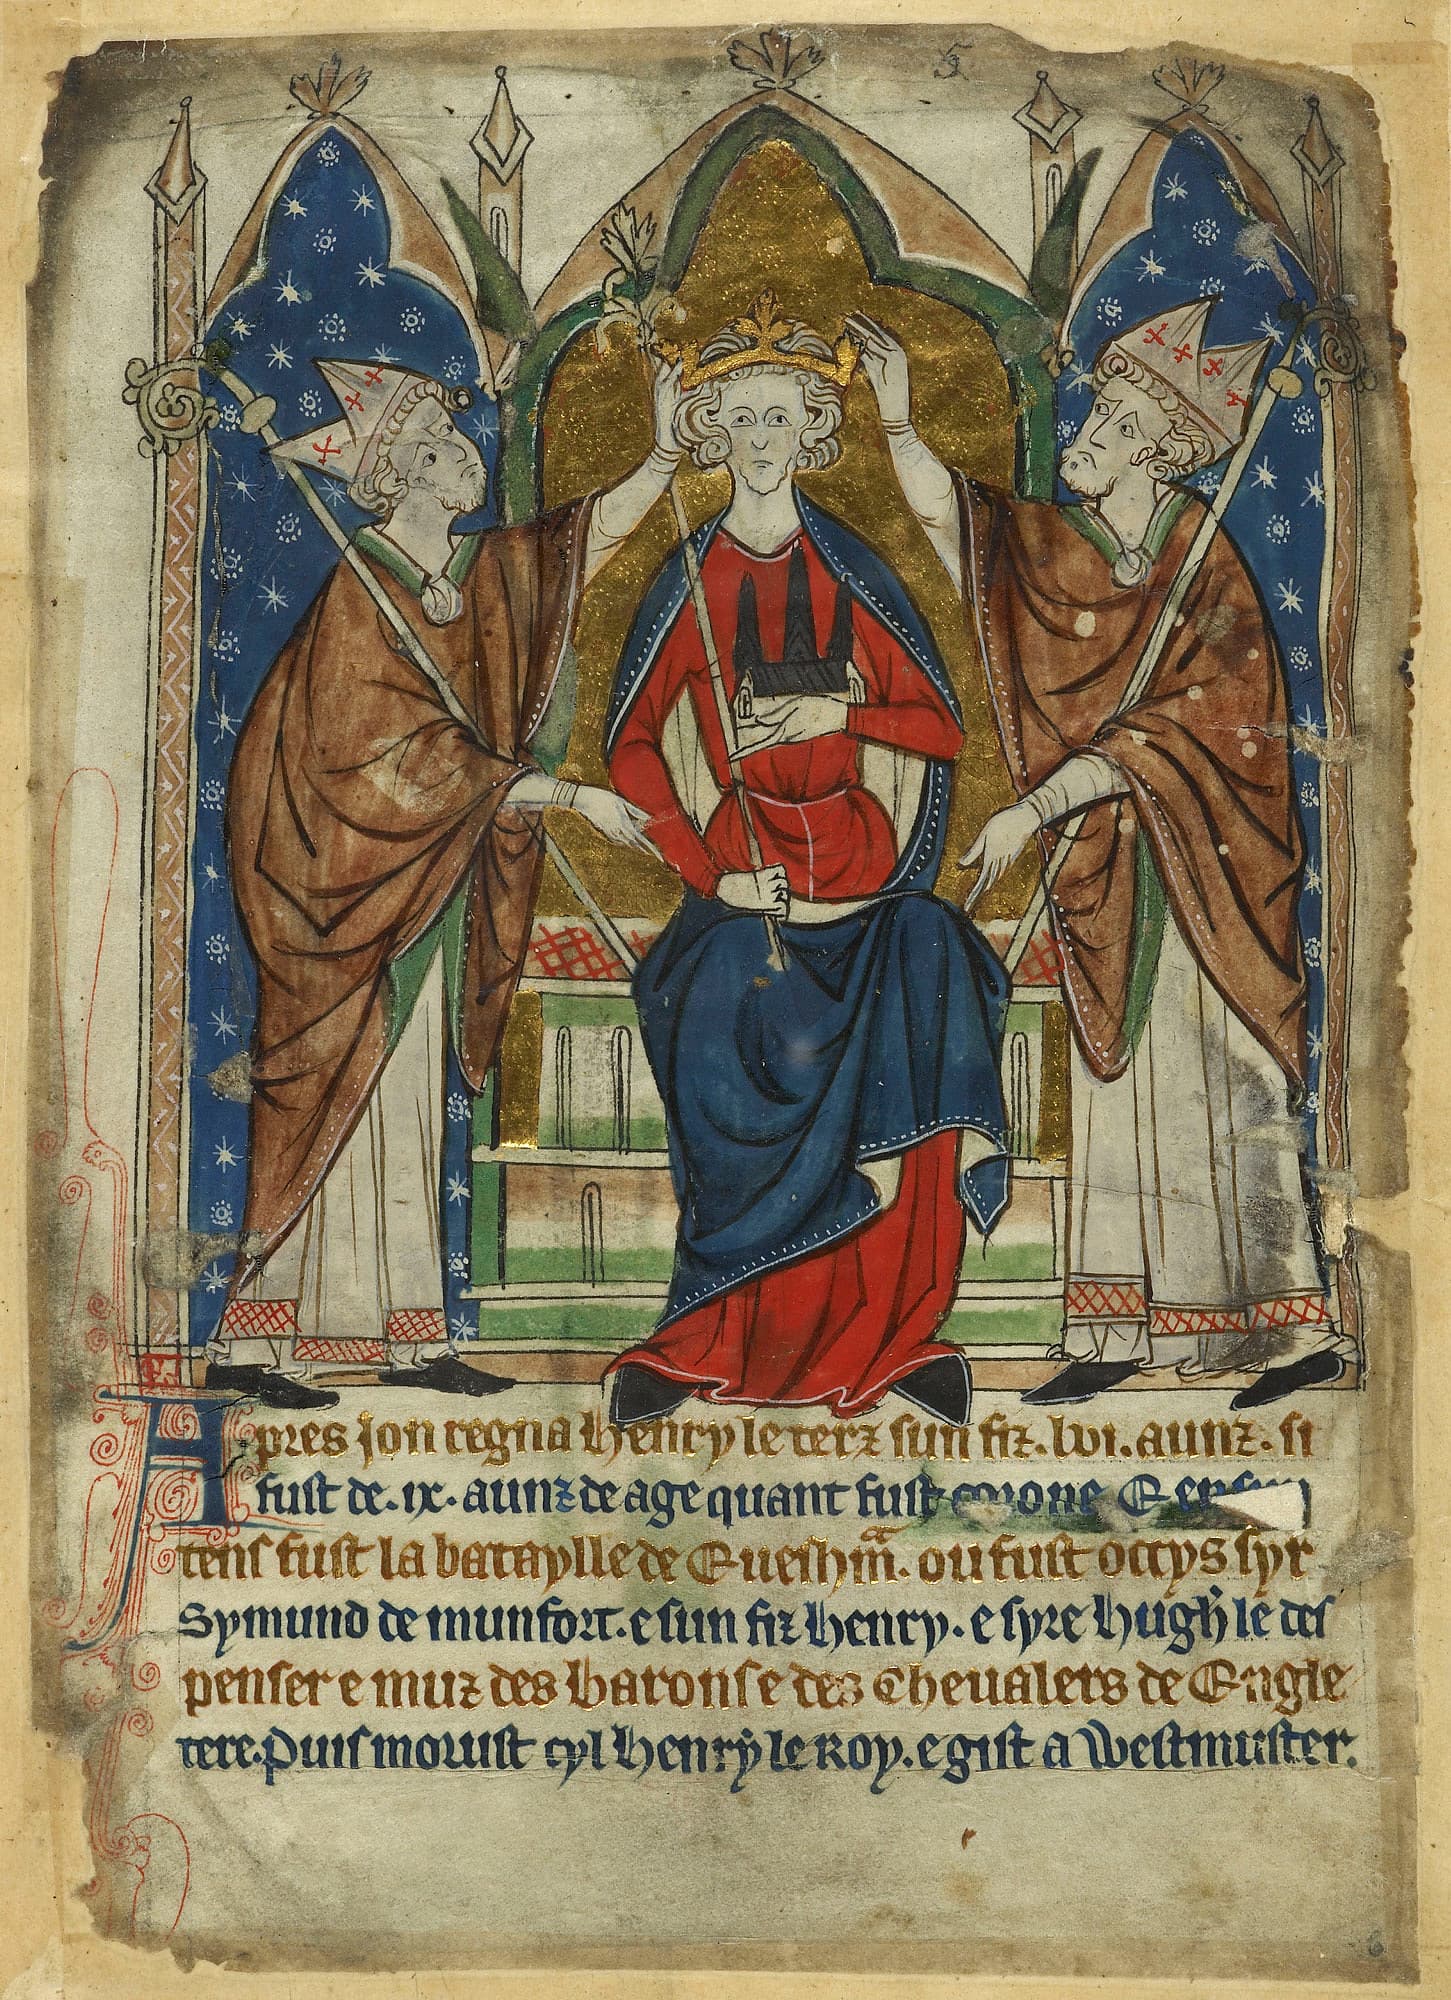 5
Apres Jon regna Henry le terz sun fiz. lvi. aunz. si
fust de .ix. aunz de age quant fust corone E en sun
tens fust la bataylle de Euesham. ou fust occys syr
Symund de munfort. e sun fiz Henry. e syre Hugh le des
penser e muz des barons e des Chevalers de Engle
tere. Puis morust cyl Henry le Roy. e gist a Westmuster.
6